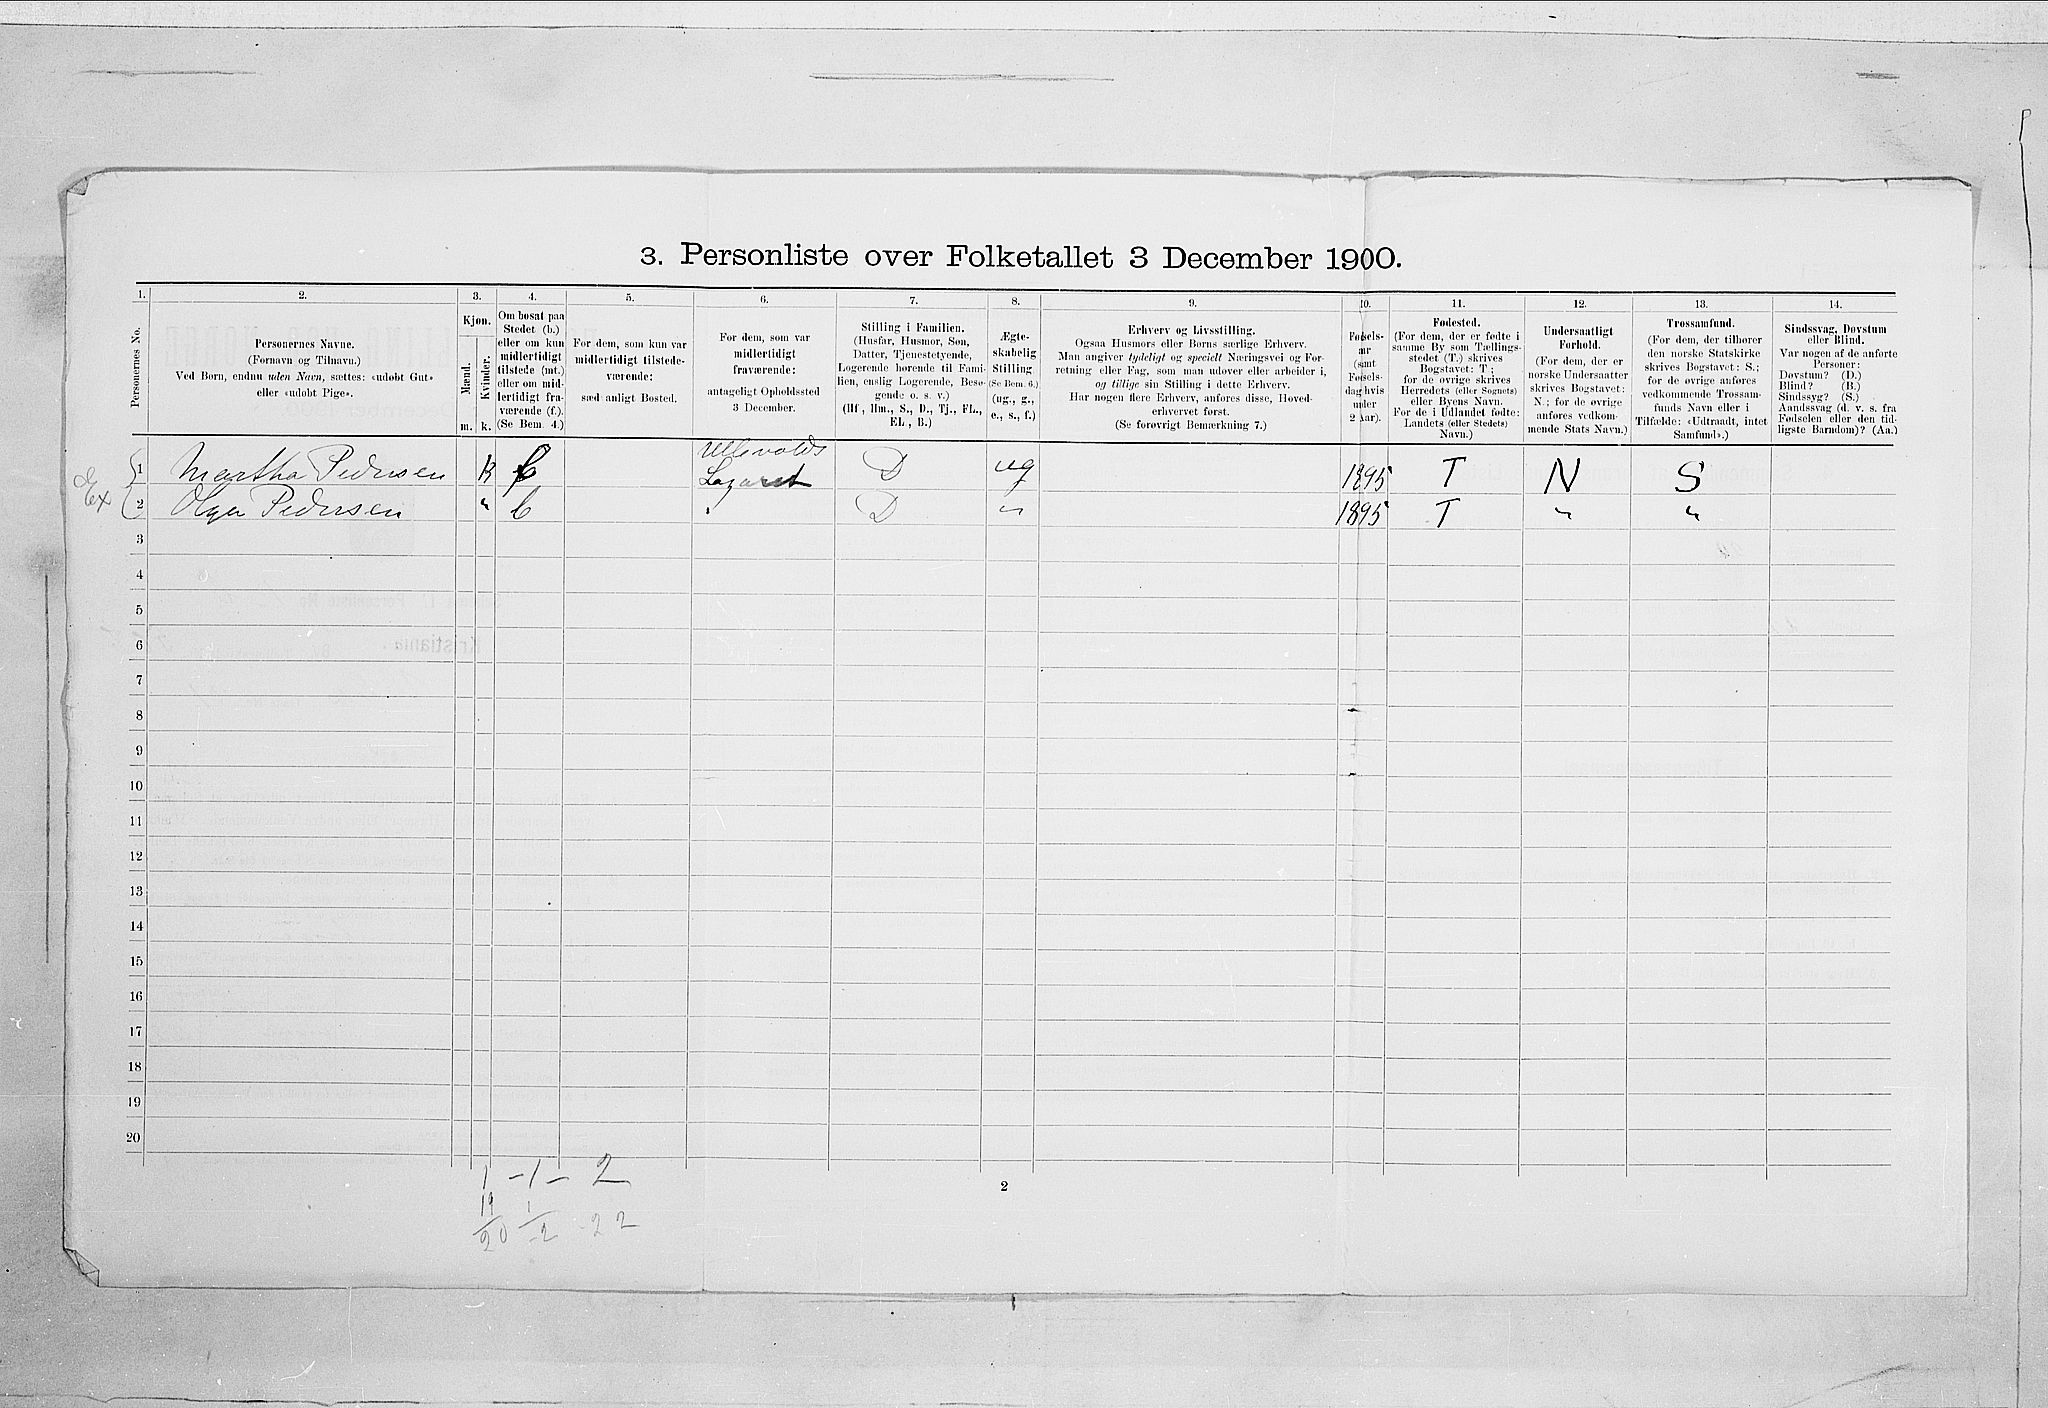 3. Personliste over Folketallet 3 December 1900.
1. 2. 3. 4. 5. 6. 7. 8. 9. 10. 11. 12. 13. 14.
Personernes No.
Personernes Navne.
(Fornavn og Tilnavn.)
Ved Børn, endnu uden Navn, sættes: «udøbt Gut»
eller «udøbt Pige».
Kjøn.
Mænd.
Kvinder.
m. k.
Om bosat paa
Stedet (b.)
eller om kun
midlertidigt
tilstede (mt.)
eller om mid-
lertidigt fra-
værende (f.).
(Se Bem. 4.)
For dem, som kun var
midlertidigt tilstede-
værende:
sædvanligt Bosted.
For dem, som var
midlertidigt
fraværende:
antageligt Opholdssted
3 December.
Stilling i Familien.
(Husfar, Husmor, Søn,
Datter, Tjenestetyende,
Logerende hørende til Fami-
lien, enslig Logerende, Besø-
gende o. s. v.)
(Hf, Hm., S., D., Tj., FL.,
EL., B.)
Ægte-
skabelig
Stilling.
(Se Bem. 6.)
(ug., g.,
e., s., f.)
Erhverv og Livsstilling.
Ogsaa Husmors eller Børns særlige Erhverv.
Man angiver tydeligt og specielt Næringsvei og For-
retning eller Fag, som man udøver eller arbeider i,
og tillige sin Stilling i dette Erhverv.
Har nogen flere Erhverv, anføres disse, Hoved-
erhvervet først.
(Se forøvrigt Bemærkning 7.)
Fødsels-
aar
(samt
Fødsels-
dag hvis
under
2 Aar).
Fødested.
(For dem, der er fødte i
samme By som Tællings-
stedet (T.) skrives
Bogstavet: T;
for de øvrige skrives
Herredets (eller Sognets)
eller Byens Navn.
For de i Udlandet fødte:
Landets (eller Stedets)
Navn.)
Undersaatligt
Forhold.
(For dem, der er
norske Undersaatter
skrives Bogstavet:
N.; for de øvrige
anføres vedkom-
mende Stats Navn.)
Trossamfund.
(For dem, der tilhører
den norske Statskirke
skrives Bogstavet: S.;
for de øvrige anføres
vedkommende Trossam-
funds Navn eller i
Tilfælde: «Udtraadt, intet
Samfund».)
Sindssvag, Døvstum
eller Blind.
Var nogen af de anførte
Personer:
Døvstum? (D.)
Blind? (B.)
Sindssyg? (S.)
Aandssvag (d. v. s. fra
Fødselen eller den tid-
ligste Barndom)? (Aa.)
Ullevolds
1 Martha Pedersen k Lazaret D ug 1895 T N S
Ex
2 Olga Pedersen " b " D " 1895 T " "
3
4
5
6
7
8
9
10
11
12
13
14
15
16
17
18
19
20
1 - 1 - 2
2
19 1
20 - 2 22